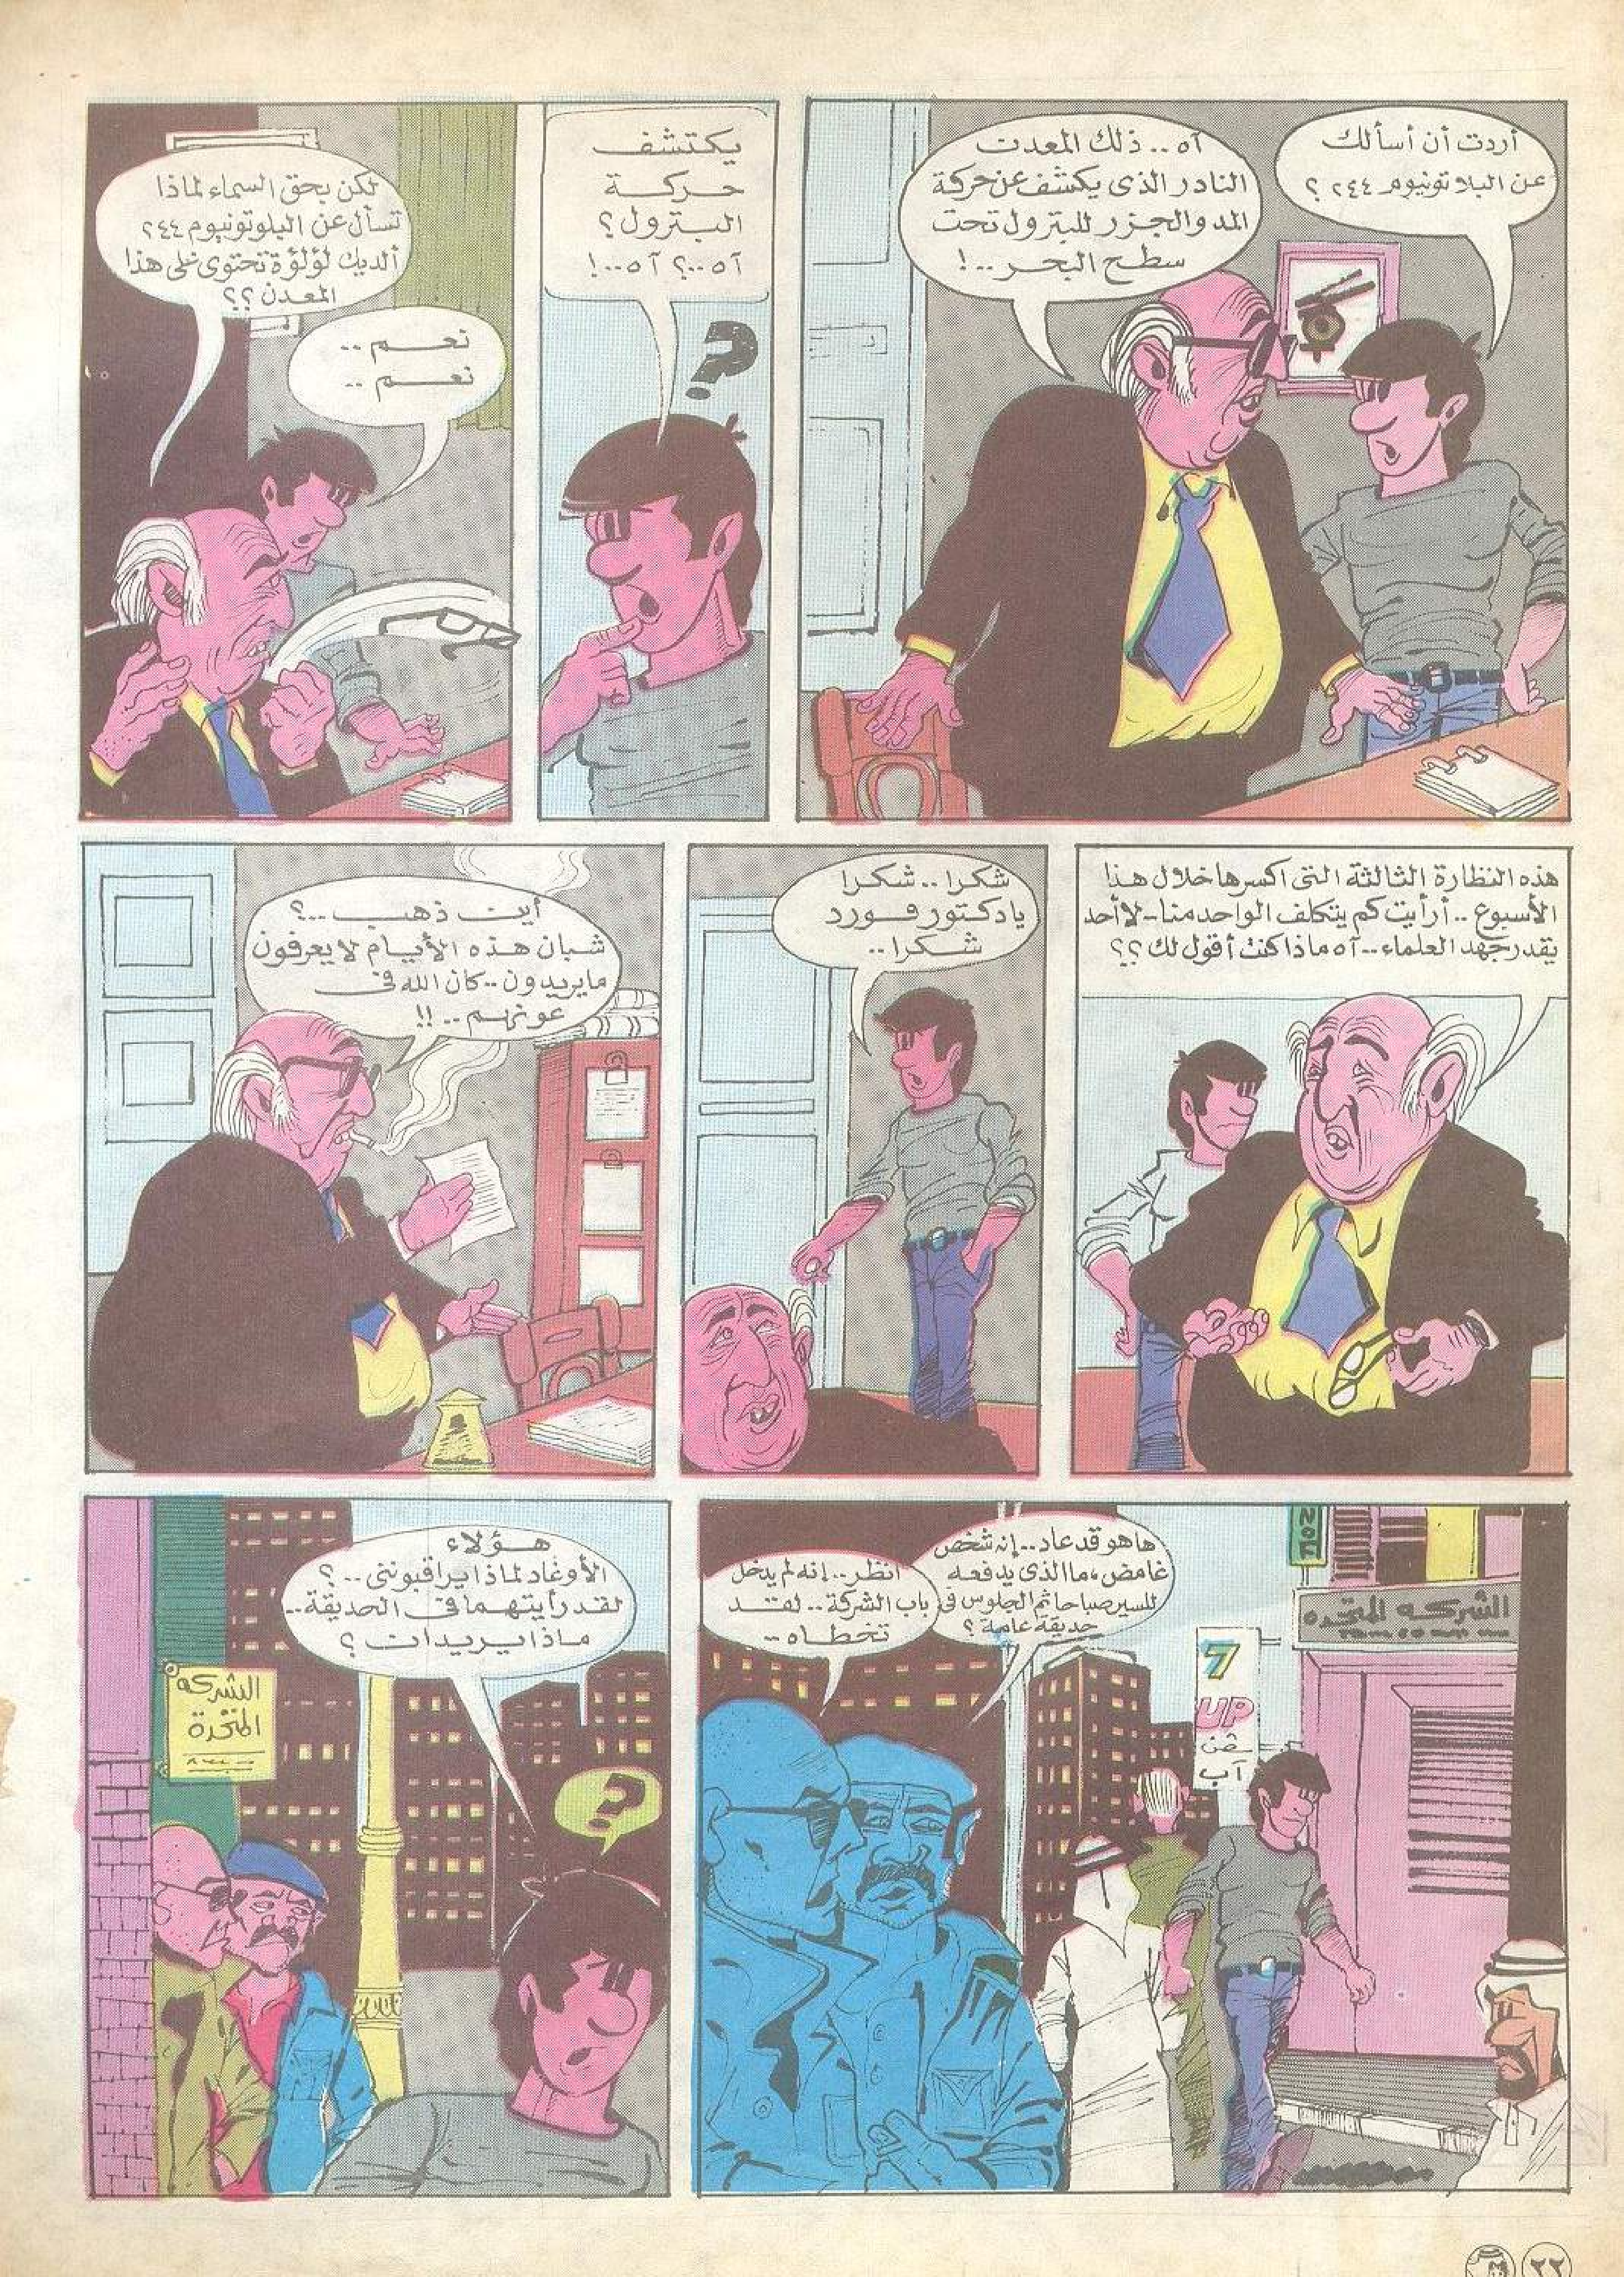 أردت أن أسألك
عن البلاتونيوم ٢٤٤ ؟
آه .. ذلك المعدن
النادر الذى يكشف عن حركة
المد والجزر للبترول تحت
سطح البحر ..!
يكتشف
حركة
البترول؟
آه ..؟ آه ..!
لكن بحق السماء لماذا
تسأل عن البلوتونيوم ٢٤٤
ألديك لؤلؤة تحتوى على هذا
المعدن ؟؟
نعم ..
نعم ..
هذه النظارة الثالثة التى اكسرها خلال هذا
الأسبوع .. أرأيت كم يتكلف الواحد منا .. لا أحد
يقدر جهد العلماء .. آه ماذا كنت أقول لك ؟؟
شكرا .. شكرا
يا دكتور فورد
شكرا ..
أين ذهب ..؟
شبان هذه الأيام لا يعرفون
ما يريدون .. كان الله فى
عونهم .. !!
ها هو قد عاد .. إنه شخص
غامض، ما الذى يدفعه
للسير صباحا ثم الجلوس فى
حديقة عامة ؟
انظر .. إنه لم يدخل
باب الشركة .. لقد
تخطاه ..
الشركه المتحده
7
UP
سفن
آب
هؤلاء
الأوغاد لماذا يراقبوننى ..؟
لقد رأيتهما فى الحديقة ..
ماذا يريدان ؟
الشركه
المتحدة
٢٢